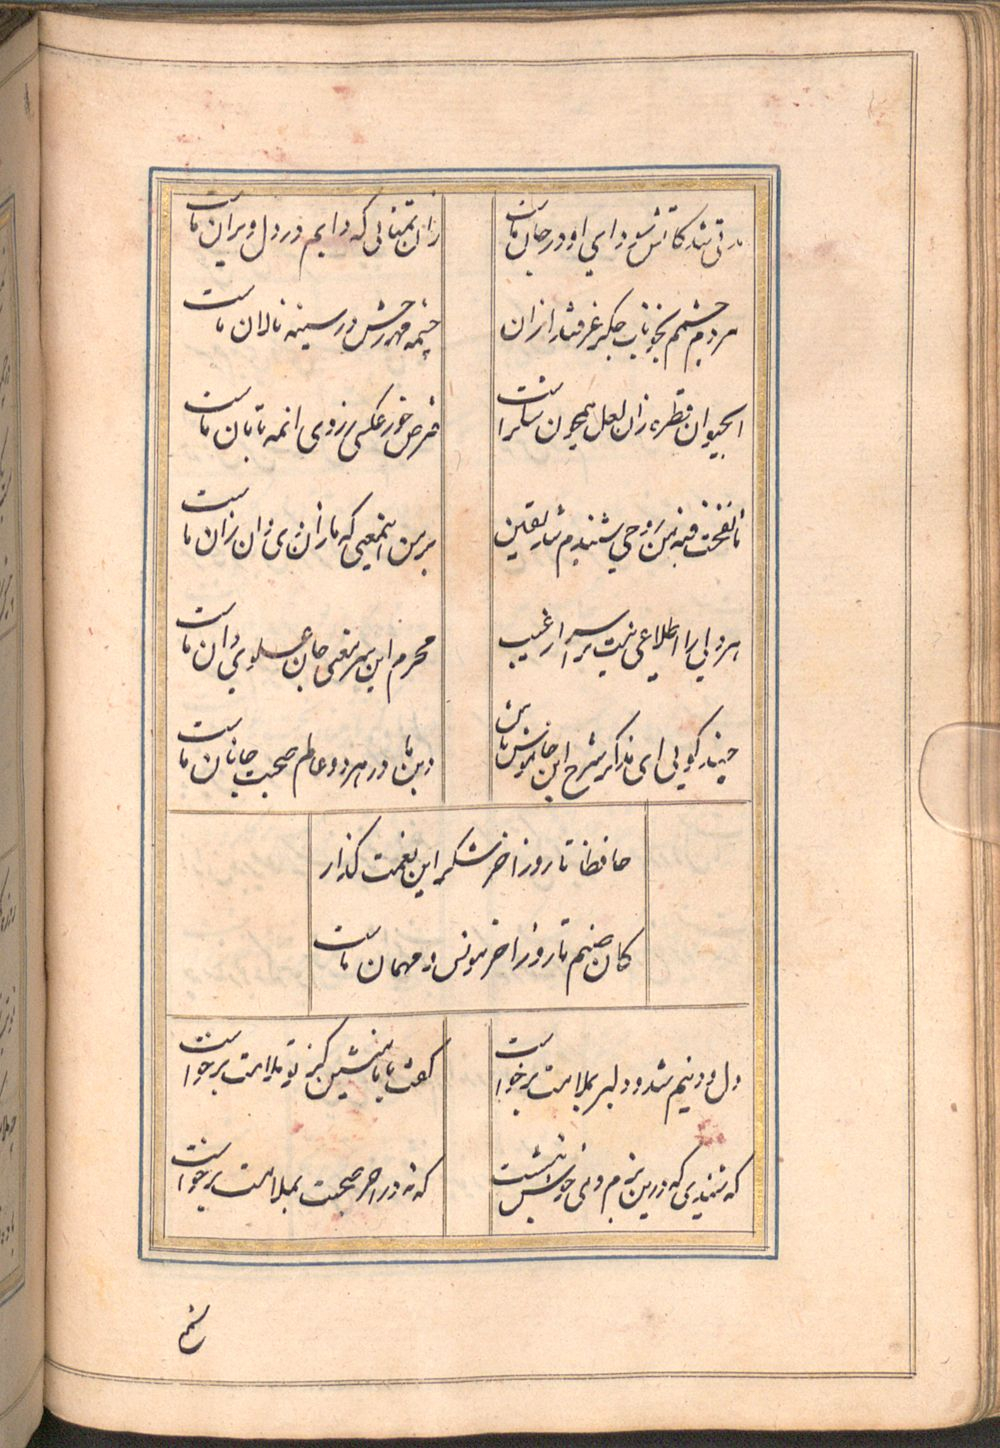 مدتی شد کاتش سودای او در جان ماست
زان تمنایی که دایم در دل ویران ماست
مردم چشمم بخوناب جگر غرقند ازان
چشمه مهر رخش در سینه نالان ماست
آبحیوان قطره زان لعل همچون شکرست
قرص خور عکسی ز روی انمه تابان ماست
تا نفخت فیه من روحی شنیدم شد یقین
بر من اینمعنی که ما زان وی و او زان ماست
هر دلی را اطلاعی نیست بر اسرار غیب
محرم این سر معنی جان علوی دان ماست
چند گویی ای مذاکر شرح این خاموش باش
دین ما در هر دو عالم صحبت جانان ماست
حافظا تا روز اخر شکر این نعمت گذار
کان صنم تا روز اخر مونس و مهمان ماست
دل و دینم شد و دلبر بملامت برخواست
گفت با ما منشین کز تو ملامت برخواست
که شنیدی که درین بزم دمی خوش بنشست
که نه در اخر صحبت بملامت برخواست
شمع